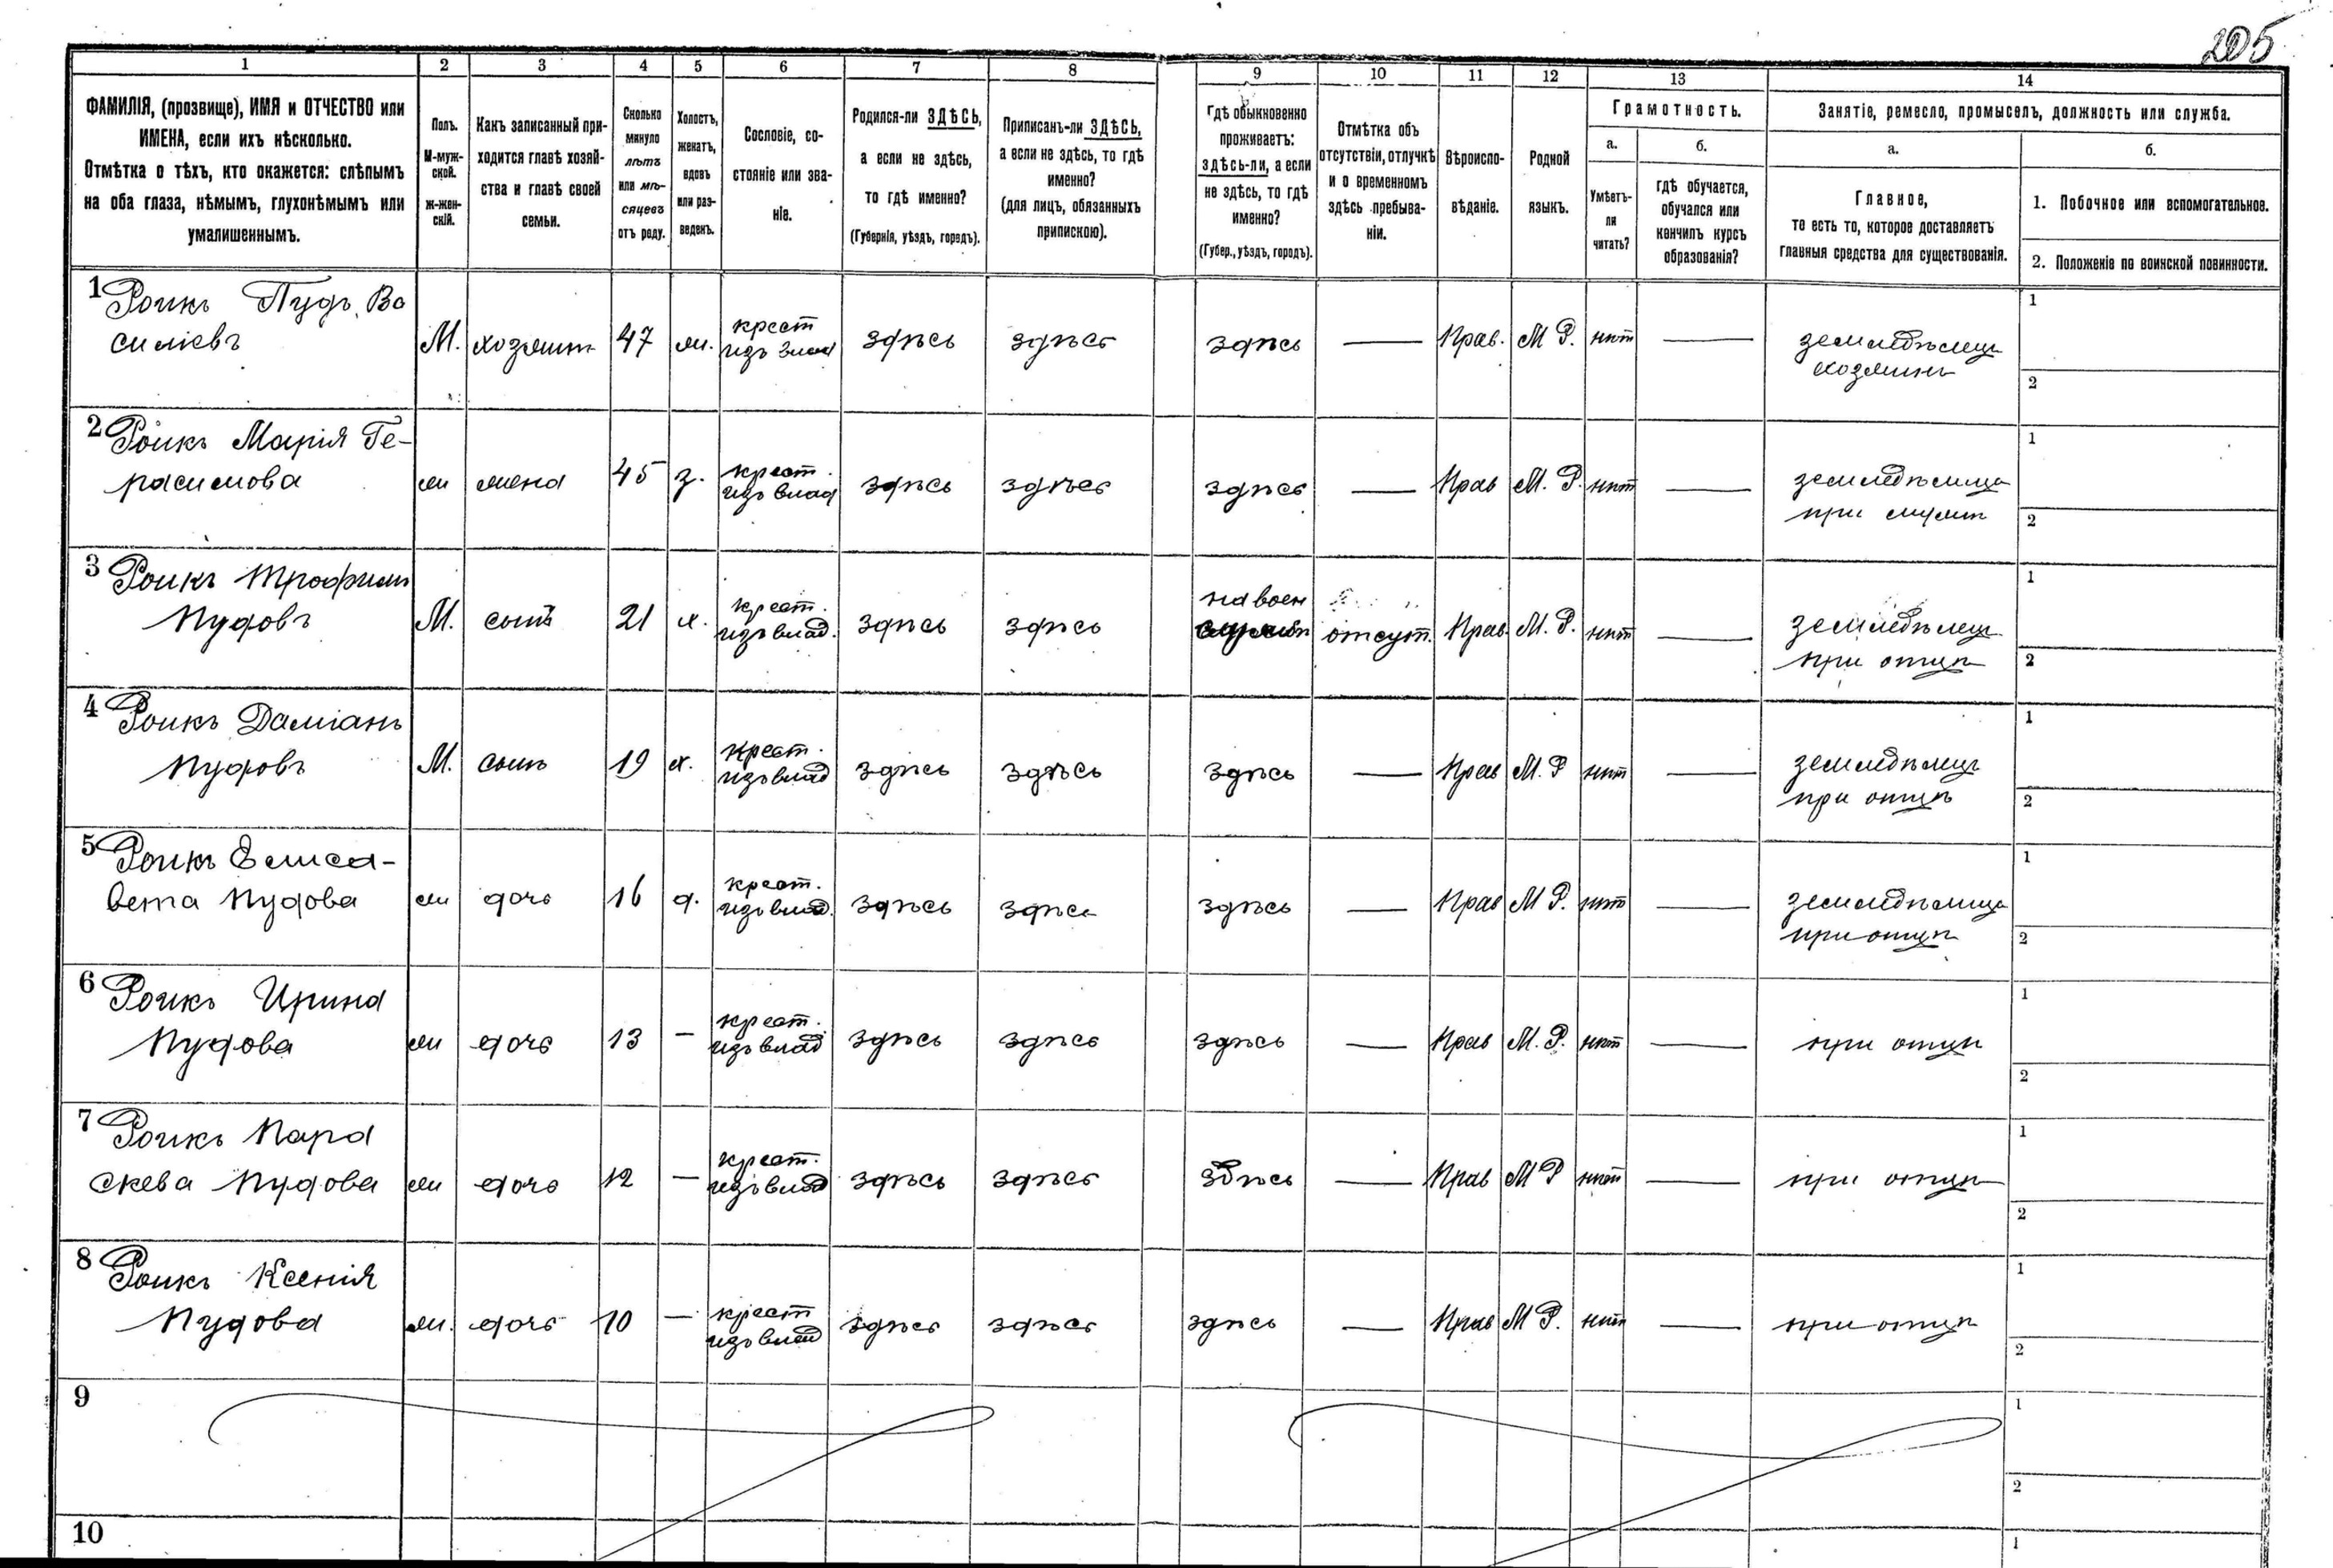 205
1 2 3 4 5 6 7 8 9 10 11 12 13 14
ФАМИЛІЯ, (прозвище), ИМЯ и ОТЧЕСТВО или
ИМЕНА, если ихъ нѣсколько.
Отмѣтка о тѣхъ, кто окажется: слѣпымъ
на оба глаза, нѣмымъ, глухонѣмымъ или
умалишеннымъ.
Полъ.
М-муж-
ской.
ж-жен-
скій.
Какъ записанный при-
ходится главѣ хозяй-
ства и главѣ своей
семьи.
Сколько
минуло
лѣтъ
или мѣ-
сяцевъ
отъ роду.
Холостъ,
женатъ,
вдовъ
или раз-
веденъ.
Сословіе, со-
стояніе или зва-
ніе.
Родился-ли ЗДѢСЬ,
а если не здѣсь,
то гдѣ именно?
(Губернія, уѣздъ, городъ).
Приписанъ-ли ЗДѢСЬ,
а если не здѣсь, то гдѣ
именно?
(для лицъ, обязанныхъ
припискою).
Гдѣ обыкновенно
проживаетъ:
здѣсь-ли, а если
не здѣсь, то гдѣ
именно?
(Губер., уѣздъ, городъ).
Отмѣтка объ
отсутствіи, отлучкѣ
и о временномъ
здѣсь пребыва-
ніи.
Вѣроиспо-
вѣданіе.
Родной
языкъ.
Грамотность.
а.
Умѣетъ-
ли
читать?
б.
гдѣ обучается,
обучался или
кончилъ курсъ
образованія?
Занятіе, ремесло, промыселъ, должность или служба.
а.
Главное,
то есть то, которое доставляетъ
главныя средства для существованія.
б.
1. Побочное или вспомогательное.
2. Положеніе по воинской повинности.
1 Роикъ Пудъ Ва
силіевъ
М. хозяинъ 47 ж. крест
изъ влад здѣсь здѣсь здѣсь — Прав. М Р. нѣт —
земледѣлец
хозяинъ
1
2
2 Роикъ Марія Ге-
расимова
ж жена 45 з. крест.
изъ влад здѣсь здѣсь здѣсь — Прав М. Р. нѣт —
земледѣлица
при мужѣ
1
2
3 Роикъ Трофимъ
Пудовъ
М. сынъ 21 х. крест.
изъ влад. здѣсь здѣсь на воен
службѣ отсут. Прав. М. Р. нѣт —
земледѣлец
при отцѣ
1
2
4 Роикъ Даміанъ
Пудовъ
М. сынъ 19 х. крест.
изъ влад здѣсь здѣсь здѣсь — Прав М. Р нѣт —
земледѣлец
при отцѣ
1
2
5 Роикъ Елиса-
вета Пудова
ж дочь 16 д. крест.
изъ влад. здѣсь здѣсь здѣсь — Прав М Р. нѣт —
земледѣлица
при отцѣ
1
2
6 Роикъ Ирина
Пудова
ж дочь 13 — крест.
изъ влад здѣсь здѣсь здѣсь — Прав М. Р. нѣт —
при отцѣ
1
2
7 Роикъ Пара
скева Пудова
ж дочь 12 — крест.
изъ влад здѣсь здѣсь здѣсь — Прав М Р нѣт —
при отцѣ
1
2
8 Роикъ Ксенія
Пудова
ж. дочь 10 — крест
изъ влад здѣсь здѣсь здѣсь — Прав М Р. нѣт —
при отцѣ
1
2
9
1
2
10
1